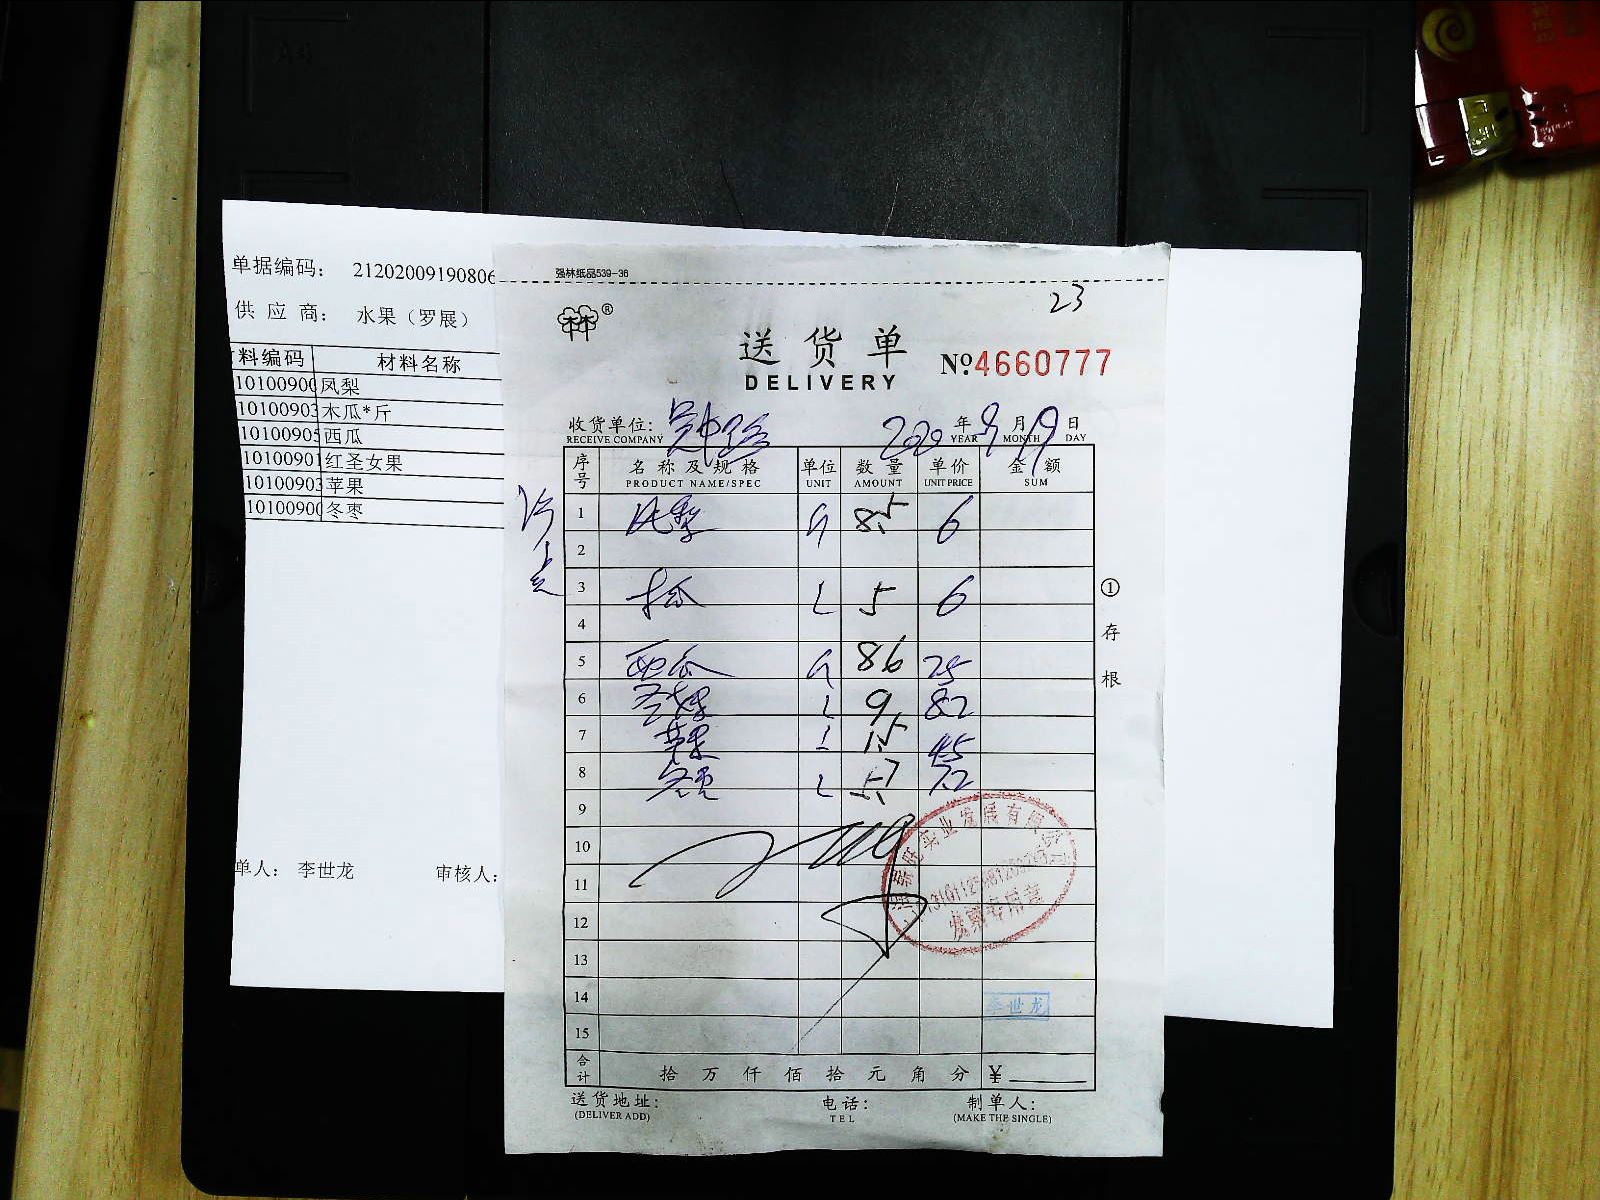 单据编码： 21202009190806
供 应 商： 水果（罗展）
料编码 材料名称
1010090 凤梨
10100903 木瓜*斤
1010090 西瓜
10100901 红圣女果
10100903 苹果
1010090 冬枣
单人： 李世龙 审核人：
强林纸品539-36
23
®
送货单
DELIVERY
№ 4660777
收货单位：
RECEIVE COMPANY
2020 年 9 月 19 日
YEAR MONTH DAY
序号 名称及规格 单位 数量 单价 金额
PRODUCT NAME/SPEC UNIT AMOUNT UNIT PRICE SUM
1 凤梨 8.5 6
2
3 木瓜 5 6
4
5 西瓜 86 25
6 9 82
7 苹果 1.5 45
8 冬枣 5.7 7.2
9
10
11
12
13
14
15
① 存根
实业发展有限公
发票专用章
李世龙
合计 拾 万 仟 佰 拾 元 角 分 ¥
送货地址： 电话： 制单人：
(DELIVER ADD) TEL (MAKE THE SINGLE)